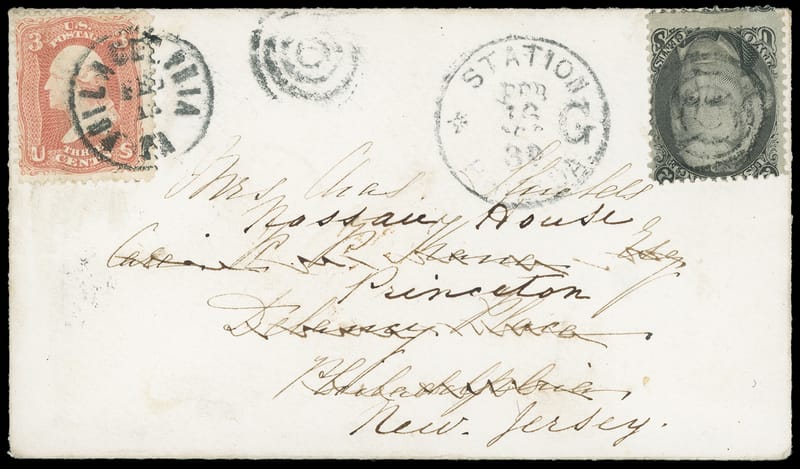 3 U.S. POSTAGE 3
U S
THREE CENTS
PHILADELPHIA PA
STATION 5
FEB
16
Mrs. Chas. Shields
Nassau House
Care
Esq
Princeton
Delancey Place
Philadelphia
New Jersey.